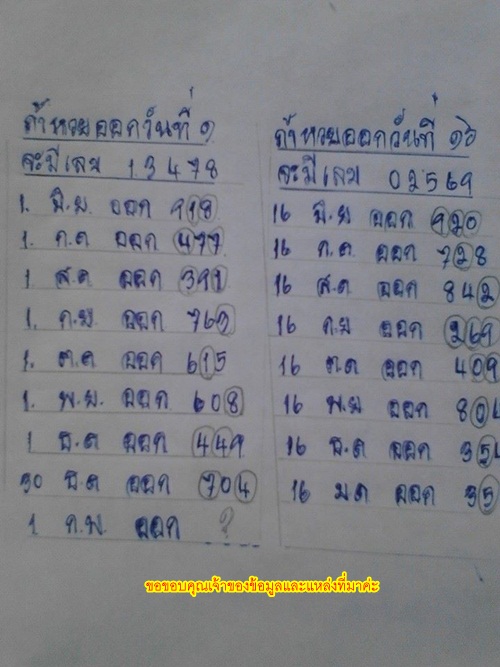 ถ้าหวยออกวันที่ ๑
จะมีเลข 1 3 4 7 8
1. มิ.ย. ออก 918
1. ก.ค ออก 477
1 ส.ค ออก 391
1. ก.ย. ออก
1. ต.ค ออก 615
1. พ.ย. ออก 608
1 ธ.ค ออก 449
30 ธ.ค ออก 704
1 ก.พ. ออก ?
ถ้าหวยออกวันที่ ๑๖
จะมีเลข 0 2 5 6 9
16 มิ.ย ออก 920
16 ก.ค ออก 728
16 ส.ค ออก 842
16 ก.ย ออก 269
16 ต.ค ออก 409
16 พ.ย ออก 80
16 ธ.ค ออก 35
16 ม.ค ออก 35
ขอขอบคุณเจ้าของข้อมูลและแหล่งที่มาค่ะ